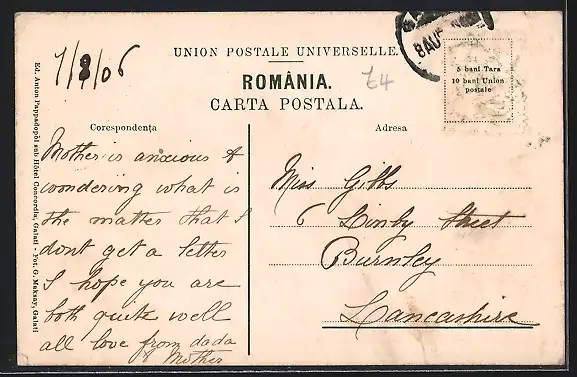 7/8/06
UNION POSTALE UNIVERSELLE.
ROMÂNIA.
£4
CARTA POSTALA.
8 AU
5 bani Tara
10 bani Union
postale
Corespondența
Adresa
Mother is anxious &
wondering what is
the matter that I
dont get a letter
I hope you are
both quite well
all love from dada
& Mother
Miss Gibbs
6 Linby Street
Burnley
Lancashire
Ed. Anton Pappadopòl sub Hôtel Concordia, Galati - Fot. G. Maksay, Galati